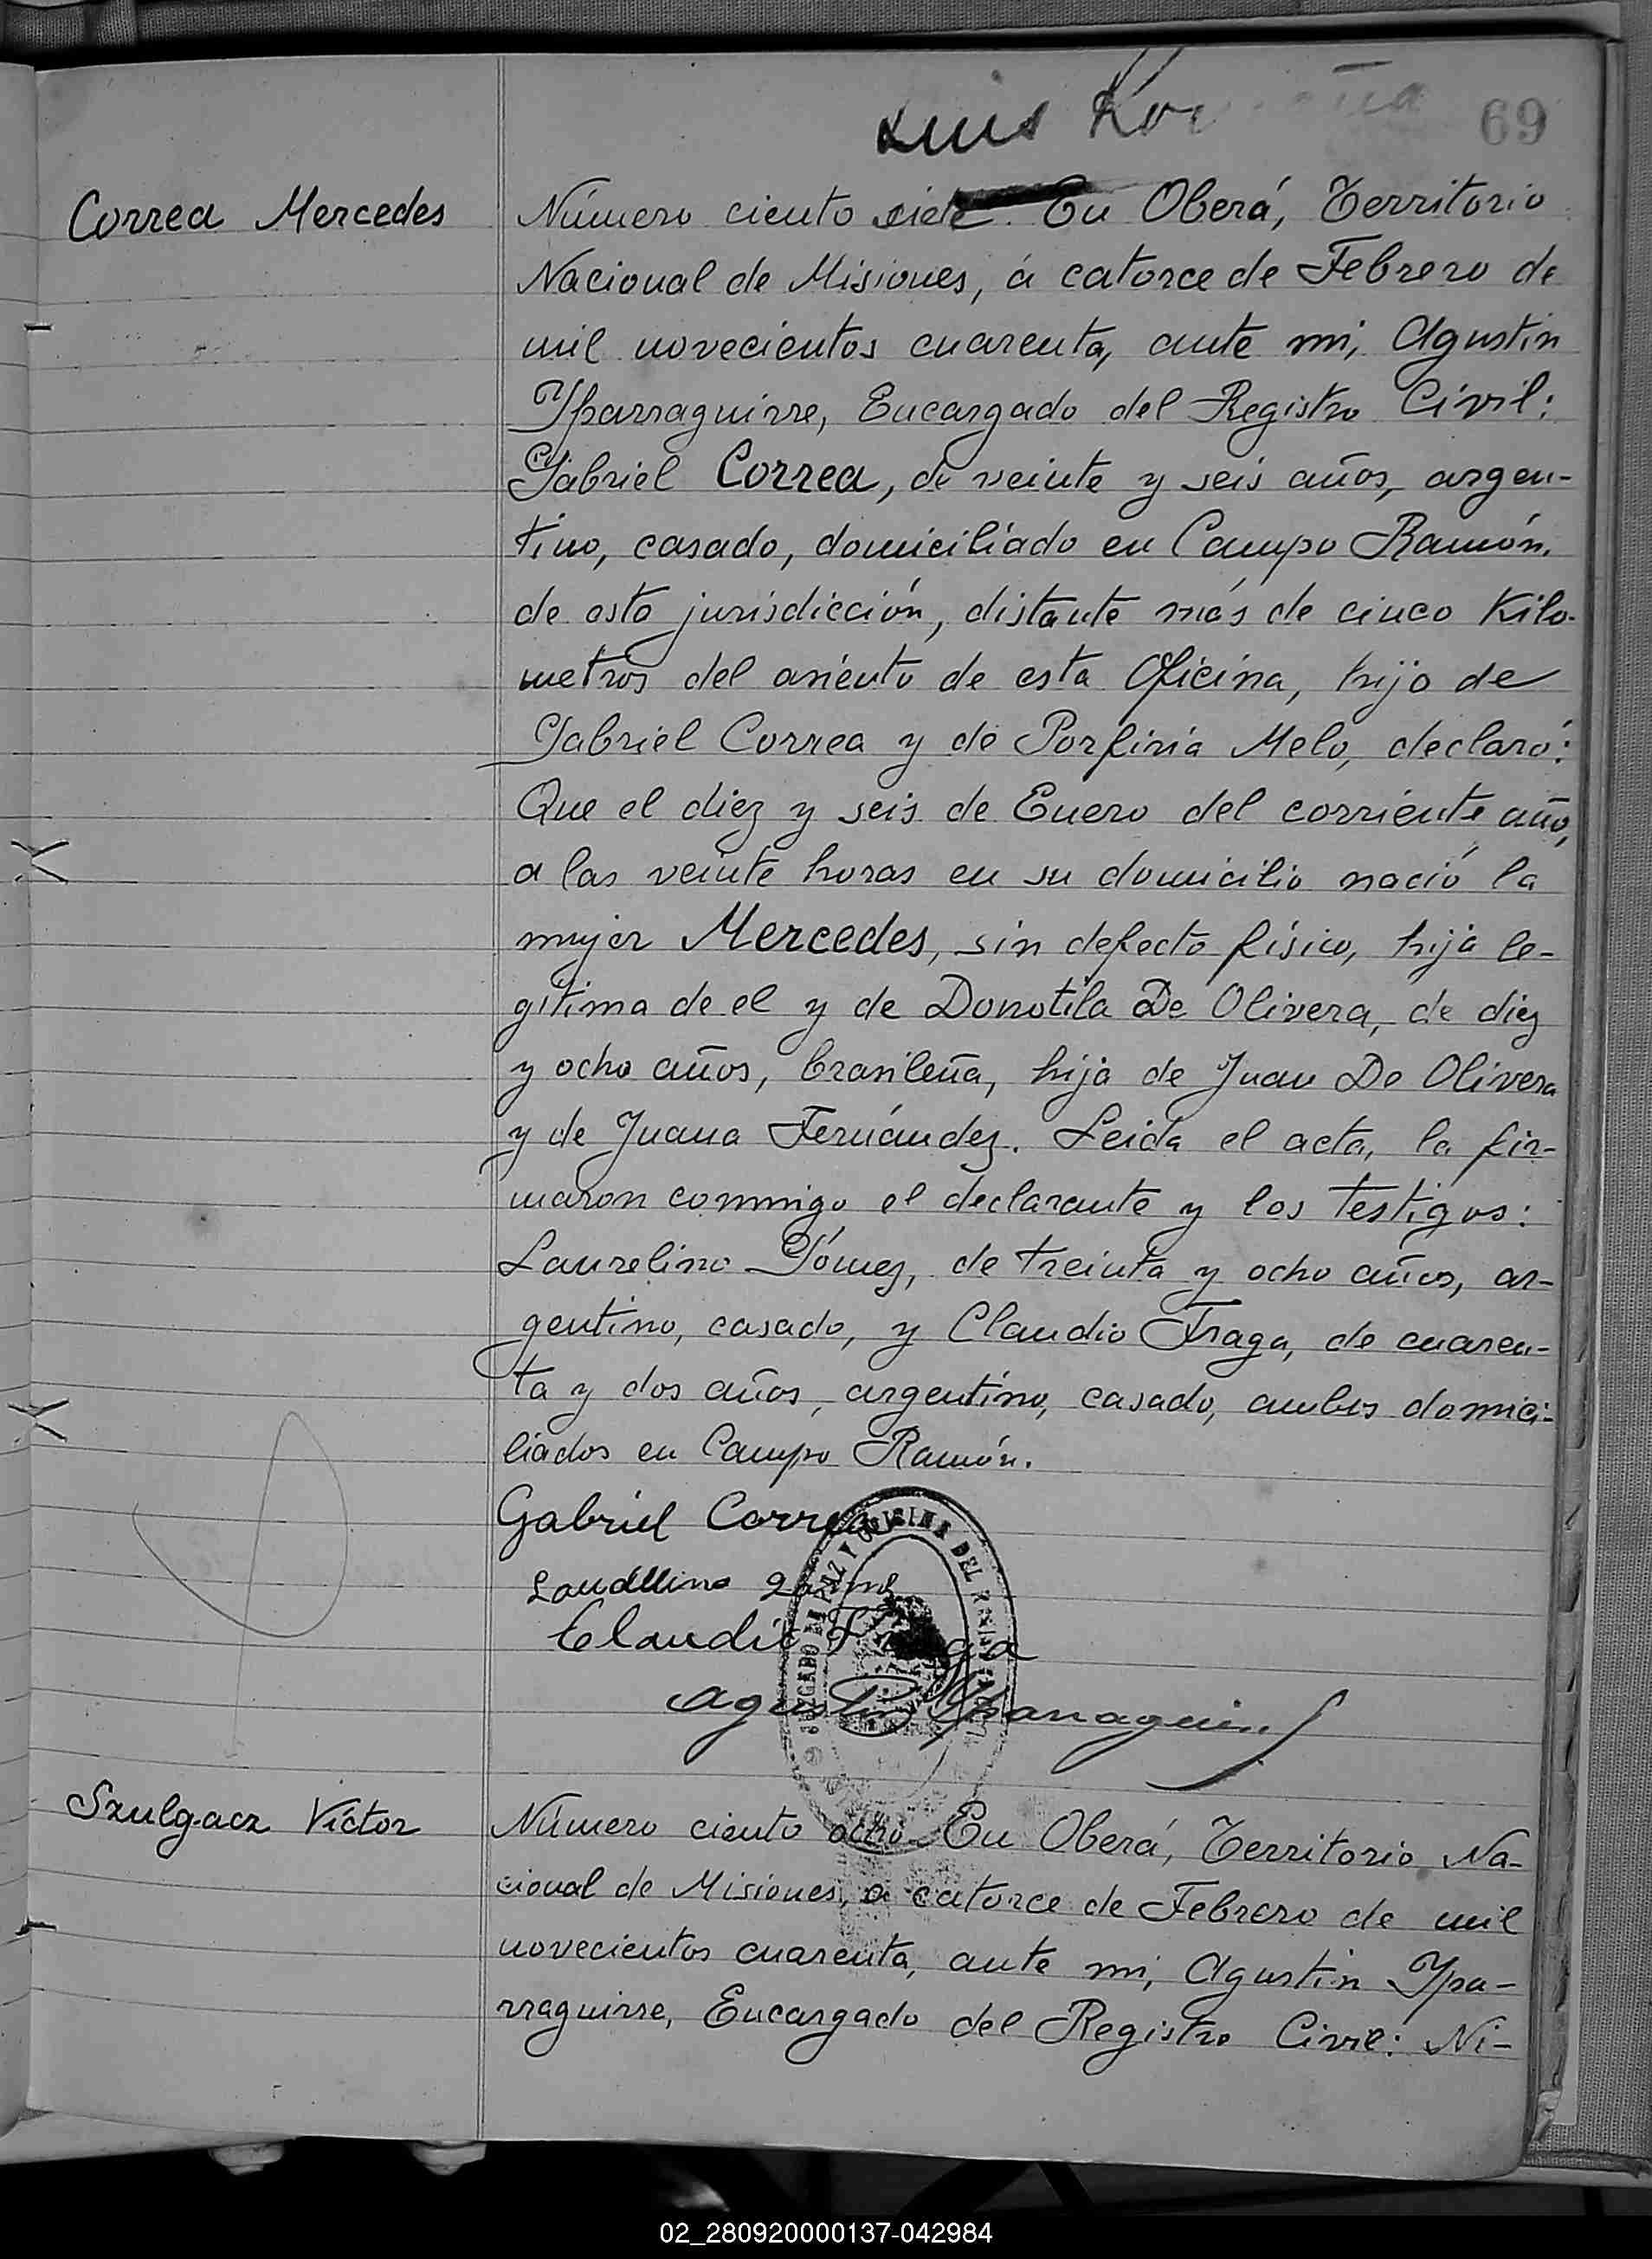 Luis
69
Correa Mercedes
Número ciento siete. En Oberá, Territorio
Nacional de Misiones, á catorce de Febrero de
mil novecientos cuarenta, ante mi, Agustin
Yparraguirre, Encargado del Registro Civil:
Gabriel Correa, de veinte y seis años, argen-
tino, casado, domiciliado en Campo Ramón,
de esta jurisdicción, distante más de cinco Kilo-
metros del asiento de esta Oficina, hijo de
Gabriel Correa y de Porfiria Melo, declaró:
Que el diez y seis de Enero del corriente año,
a las veinte horas en su domicilio nació la
mujer Mercedes, sin defecto físico, hija le-
gitima de el y de Donotila De Olivera, de diez
y ocho años, brasileña, hija de Juan De Olivera
y de Juana Fernández. Leida el acta, la fir-
maron conmigo el declarante y los testigos:
Laurelino Gómez, de treinta y ocho años, ar-
gentino, casado, y Claudio Fraga, de cuaren-
ta y dos años, argentino, casado, ambos domici-
liados en Campo Ramón.
Gabriel Correa
Claudio Fraga
Agustin Yparraguirre
JUZGADO DE PAZ Y OFICINA DEL
Szulgacz Víctor
Número ciento ocho. En Oberá, Territorio Na-
cional de Misiones, a catorce de Febrero de mil
novecientos cuarenta, ante mi, Agustin Ypa-
rraguirre, Encargado del Registro Civil: Ni-
02_280920000137-042984